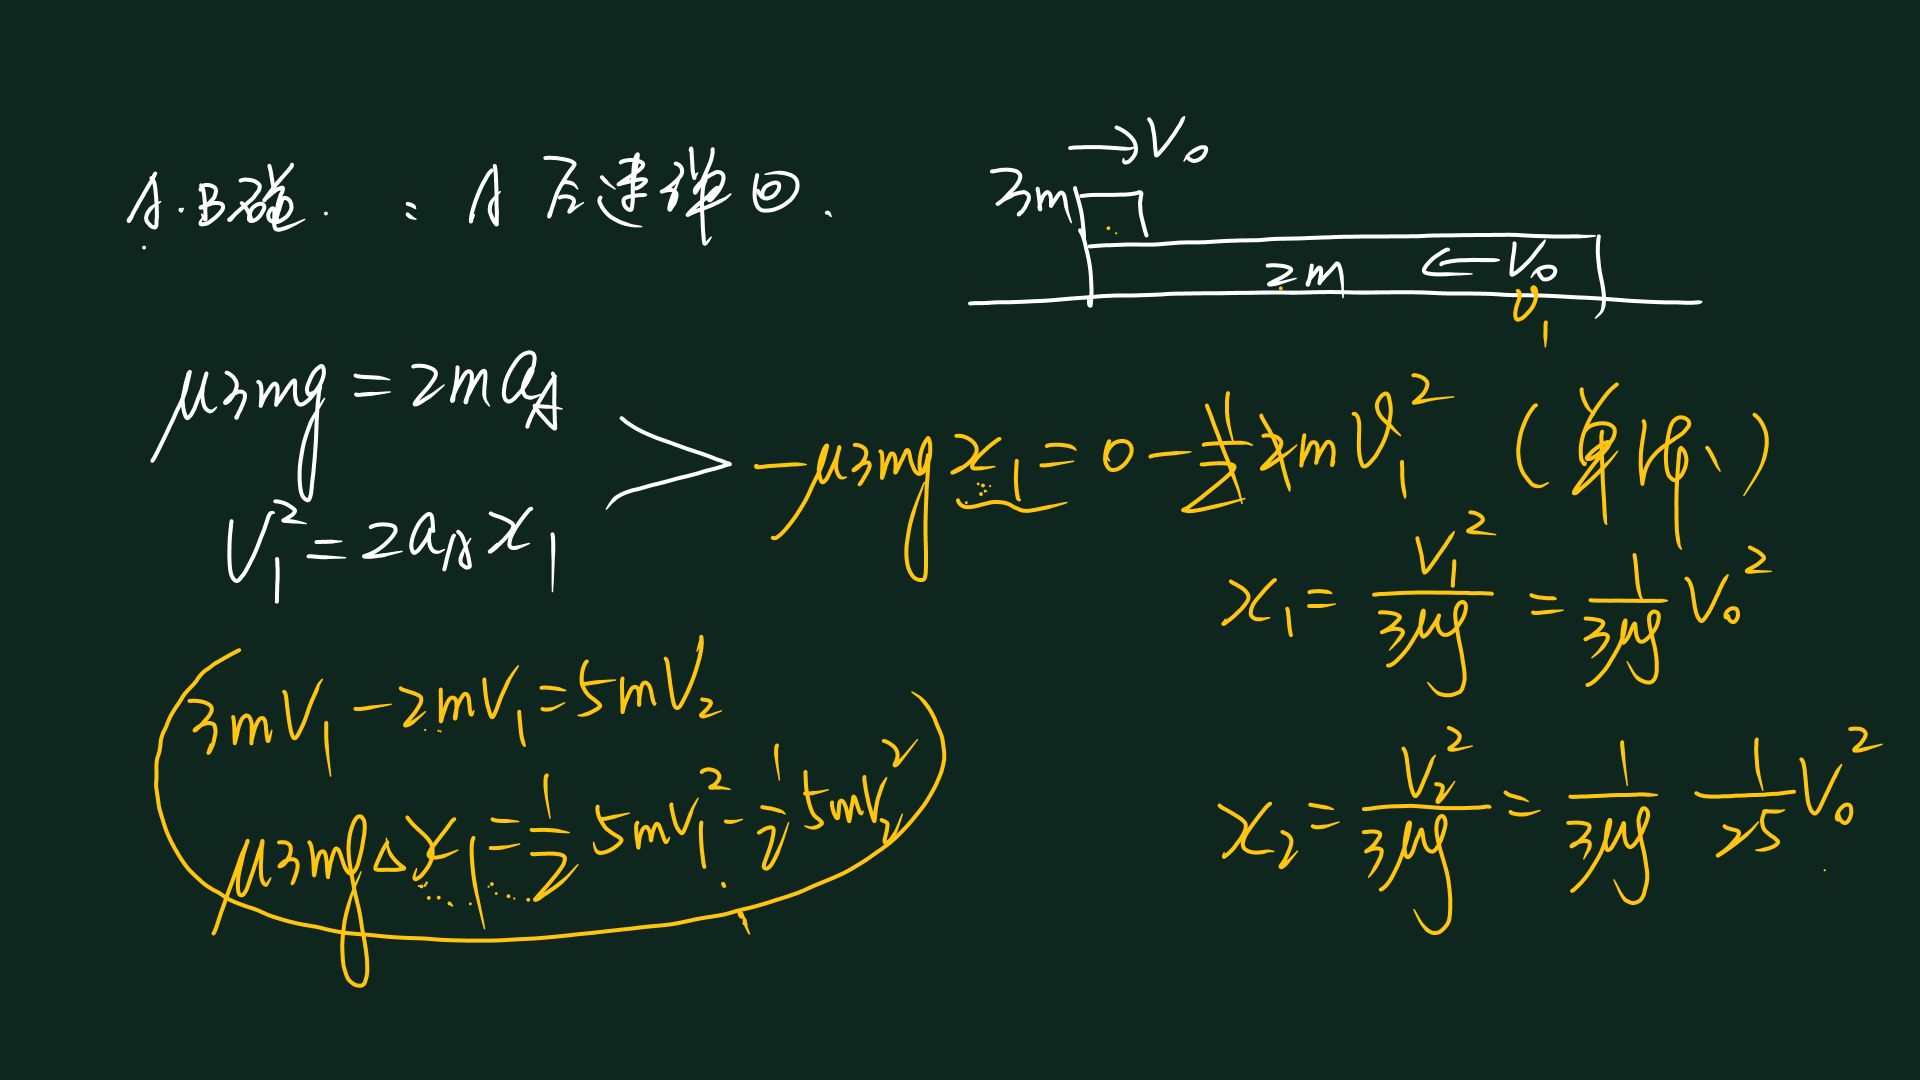 A.B碰. : A 原速弹回.
→V₀
3m
2m ←V₀
v₁
μ3mg=2ma_A
V₁²=2a_A x₁
-μ3mg x₁=0-½2mV₁² (单体、)
x₁=V₁²/3μg=1/3μg V₀²
3mV₁-2mV₁=5mV₂
μ3mgΔx₁=½5mV₁²-½5mV₂²
x₂=V₂²/3μg=1/3μg 1/25 V₀²